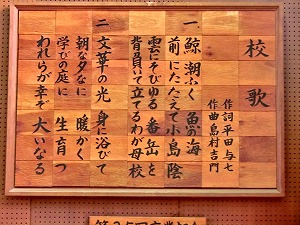 校歌
作詞 平田与七
作曲 島村吉門
一 鯨潮ふく 魚の海
前にたたえて小島陰
雲にそびゆる 番岳を
背負いて立てるわが母校
二 文華の光 身に浴びて
朝な夕なに 暖かく
学びの庭に 生育つ
われらが幸ぞ 大いなる